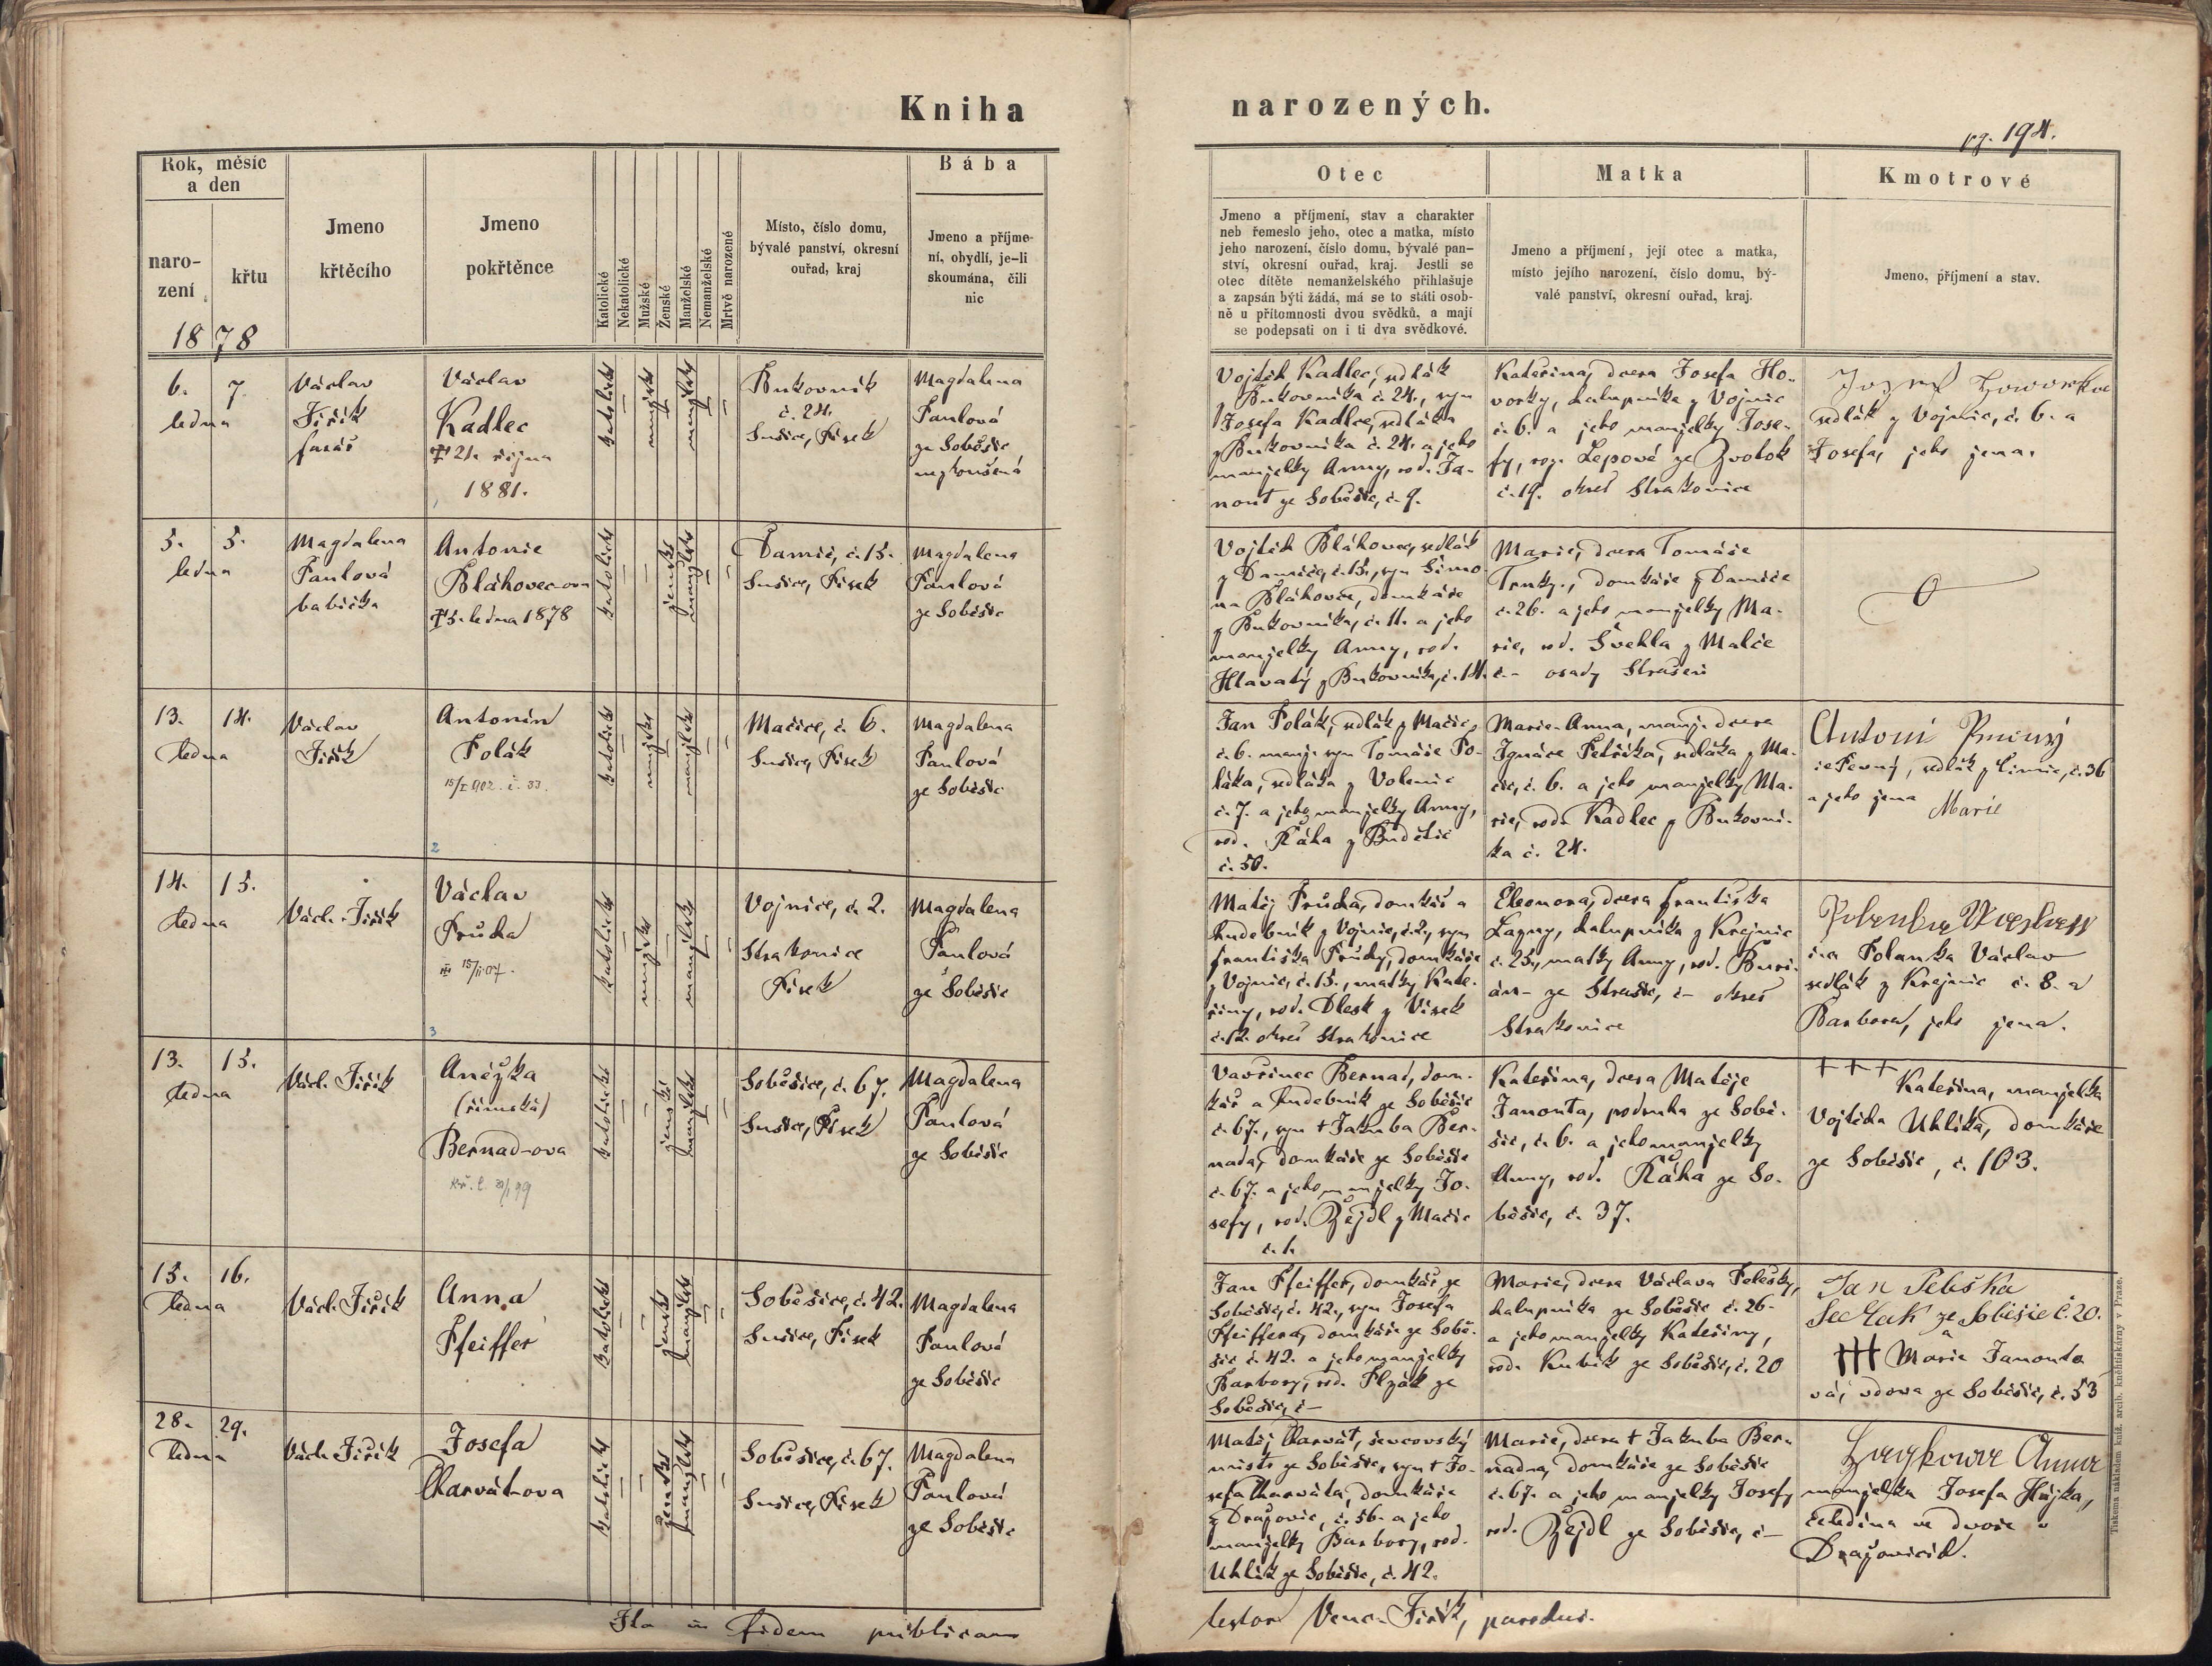 Kniha
narozených.
pg. 194.
Rok, měsíc
a den
naro-
zení
křtu
1878
Jmeno
křtěcího
Jmeno
pokřtěnce
Katolické
Nekatolické
Mužské
Ženské
Manželské
Nemanželské
Mrtvě narozené
Místo, číslo domu,
bývalé panství, okresní
ouřad, kraj
Bába
Jmeno a příjme-
ní, obydlí, je-li
skoumána, čili
nic
Otec
Jmeno a příjmení, stav a charakter
neb řemeslo jeho, otec a matka, místo
jeho narození, číslo domu, bývalé pan-
ství, okresní ouřad, kraj. Jestli se
otec dítěte nemanželského přihlašuje
a zapsán býti žádá, má se to státi osob-
ně u přítomnosti dvou svědků, a mají
se podepsati on i ti dva svědkové.
Matka
Jmeno a příjmení, její otec a matka,
místo jejího narození, číslo domu, bý-
valé panství, okresní ouřad, kraj.
Kmotrové
Jmeno, příjmení a stav.
6. 7.
ledna
Václav
Jiřík
farář
Václav
Kadlec
† 21. října
1881.
katolické
mužské
manželské
Bukovník
č. 24.
Sušice, Písek
Magdalena
Paulová
ze Soběšic
nezkoušená
Vojtěch Kadlec, sedlák
z Bukovníka č. 24., syn
Josefa Kadlece, sedláka
z Bukovníka č. 24. a jeho
manželky Anny, rod. Ja-
nout ze Soběšic, č. 9.
Kateřina, dcera Josefa Ho-
vorky, chalupníka z Vojnic
č. 6. a jeho manželky Jose-
fy, roz. Lepové ze Zvotok
č. 19. okres Strakonice
Jozef Howorka
sedlák z Vojnic, č. 6. a
Josefa, jeho žena.
5. 5.
ledna
Magdalena
Paulová
babička
Antonie
Bláhovec-ova
† 5. ledna 1878
katolické
ženské
manželské
Damíč, č. 15.
Sušice, Písek
Magdalena
Paulová
ze Soběšic
Vojtěch Bláhovec, sedlák
z Damíče, č. 15., syn Šimo-
na Bláhovce, domkáře
z Bukovníka, č. 11. a jeho
manželky Anny, rod.
Hlavatý z Bukovníka, č. 14.
Marie, dcera Tomáše
Trnky, domkáře z Damíče
č. 26. a jeho manželky Ma-
rie, rod. Švehla z Malče
č.- osady Strašeň
13. 14.
ledna
Václav
Jiřík
Antonín
Polák
15/I 902. č. 33.
2
katolické
mužské
manželské
Mačice, č. 6.
Sušice, Písek
Magdalena
Paulová
ze Soběšic
Jan Polák, sedlák z Mačic,
č. 6. manž. syn Tomáše Po-
láka, sedláka z Volenic
č. 7. a jeho manželky Anny,
rod. Ráha z Budětic
č. 50.
Marie Anna, manž. dcera
Ignáce Petříka, sedláka z Ma-
čic, č. 6. a jeho manželky Ma-
rie, rod. Kadlec z Bukovní-
ka č. 24.
Antoní
Pevný, sedlák z Čimic, č. 36
a jeho žena Marie
14. 15.
ledna
Václ. Jiřík
Václav
Průcha
15/II 07.
3
katolické
mužské
manželské
Vojnice, č. 2.
Strakonice
Písek
Magdalena
Paulová
ze Soběšic
Matěj Průcha, domkář a
hudebník z Vojnic, č. 2., syn
Františka Průchy, domkáře
z Vojnic, č. 15., matky Kate-
řiny, rod. Dlesk z Vísek
č. 12. okres Strakonice
Eleonora, dcera Františka
Lagny, chalupníka z Krejnic
č. 25., matky Anny, rod. Buri-
án- ze Strašic, č- okres
Strakonice
Polanka Václav
sedlák z Krejnic č. 8. a
Barbora, jeho žena.
13. 15.
ledna
Václ. Jiřík
Anéžka
(římská)
Bernad-ova
katolické
ženské
manželské
Soběšice, č. 67.
Sušice, Písek
Magdalena
Paulová
ze Soběšic
Vavřinec Bernad, dom-
kář a hudebník ze Soběšic
č. 67., syn † Jakuba Ber-
nada, domkáře ze Soběšic
č. 67. a jeho manželky Jo-
sefy, rod. Zejdl z Mačic
č. 1.
Kateřina, dcera Matěje
Janouta, podruha ze Sobě-
šic, č. 6. a jeho manželky
Anny, rod. Ráha ze So-
běšic, č. 37.
+++ Kateřina, manželka
Vojtěcha Uhlíka, domkáře
ze Soběšic, č. 103.
15. 16.
ledna
Václ. Jiřík
Anna
Pfeiffer
katolické
ženské
manželské
Soběšice, č. 42.
Sušice, Písek
Magdalena
Paulová
ze Soběšic
Jan Pfeiffer, domkář ze
Soběšic, č. 42., syn Josefa
Pfeiffera, domkáře ze Sobě-
šic č. 42. a jeho manželky
Barbory, rod. Plzák ze
Soběšic, č-
Marie, dcera Václava Pelešky,
chalupníka ze Soběšic č. 26.
a jeho manželky Kateřiny,
rod. Kubík ze Soběšic, č. 20
Jan Peleška
Sedlák ze Soběšic č. 20.
a
+++ Marie Janouto
vá, vdova ze Soběšic, č. 53
28. 29.
ledna
Václ. Jiřík
Josefa
Charvát-ova
katolické
ženské
manželské
Soběšice, č. 67.
Sušice, Písek
Magdalena
Paulová
ze Soběšic
Matěj Charvát, ševcovský
mistr ze Soběšic, syn † Jo-
sefa Charváta, domkáře
z Dražovic, č. 56. a jeho
manželky Barbory, rod.
Uhlík ze Soběšic, č. 42.
Marie, dcera † Jakuba Ber-
nada, domkáře ze Soběšic
č. 67. a jeho manželky Josefy
rod. Zejdl ze Soběšic, č-
Anna
manželka Josefa Hájka,
čeledína ve dvoře v
Dražovicích.
Ita in fidem publicam
testor Venc. Jiřík, parochus.
Tiskem a nákladem kníž. arcib. knihtiskárny v Praze.